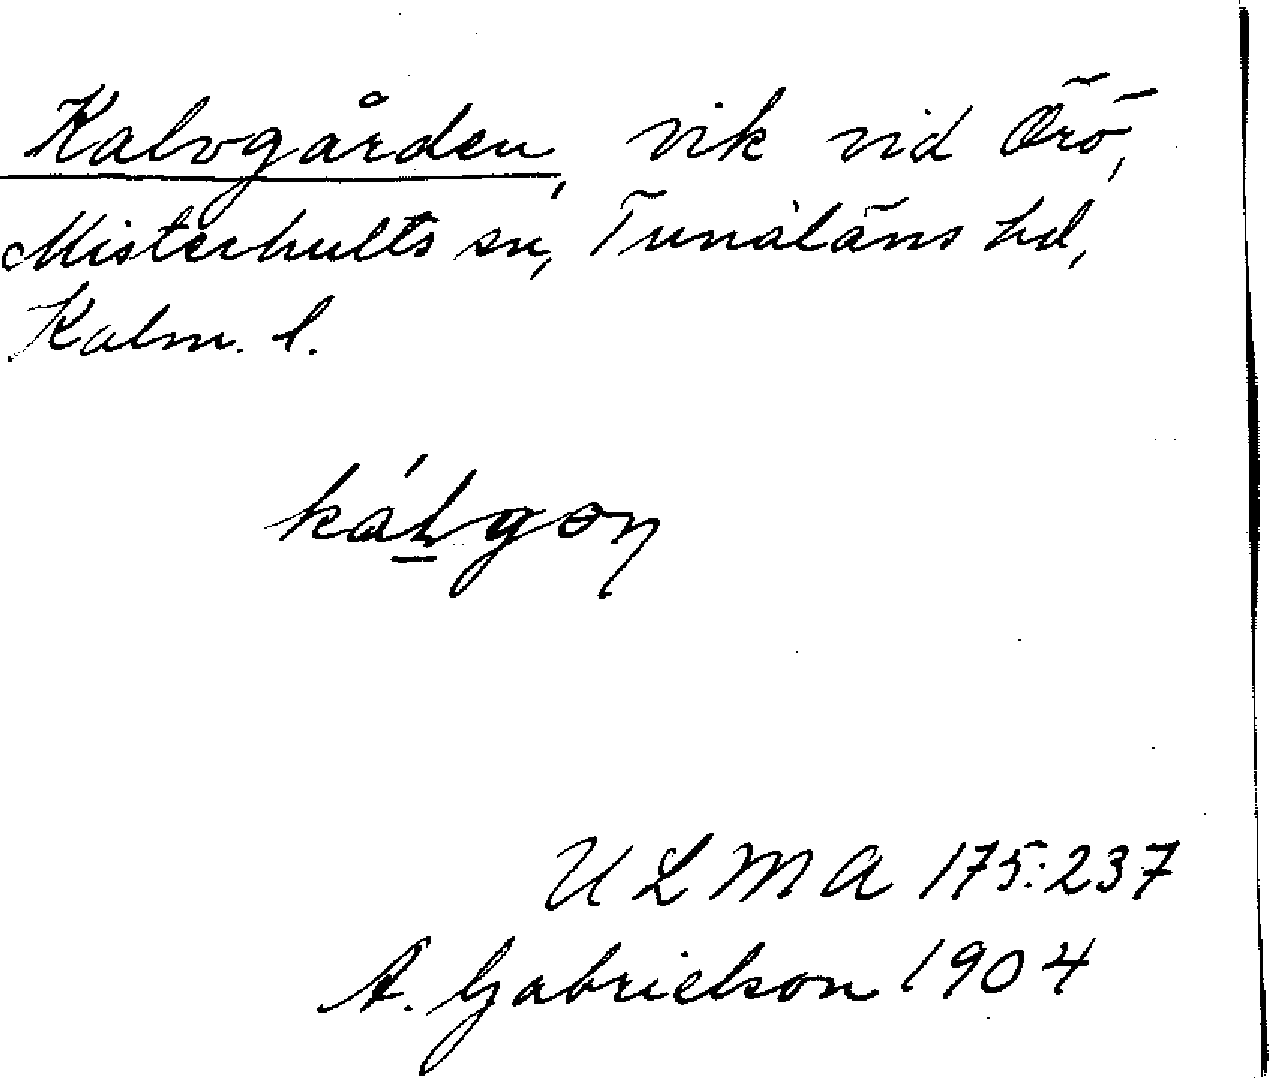 Kalvgården, vik vid Örö,
Misterhults sn, Tunaläns hd,
Kalm. l.
U L M A 175:237
A. Gabrielson 1904